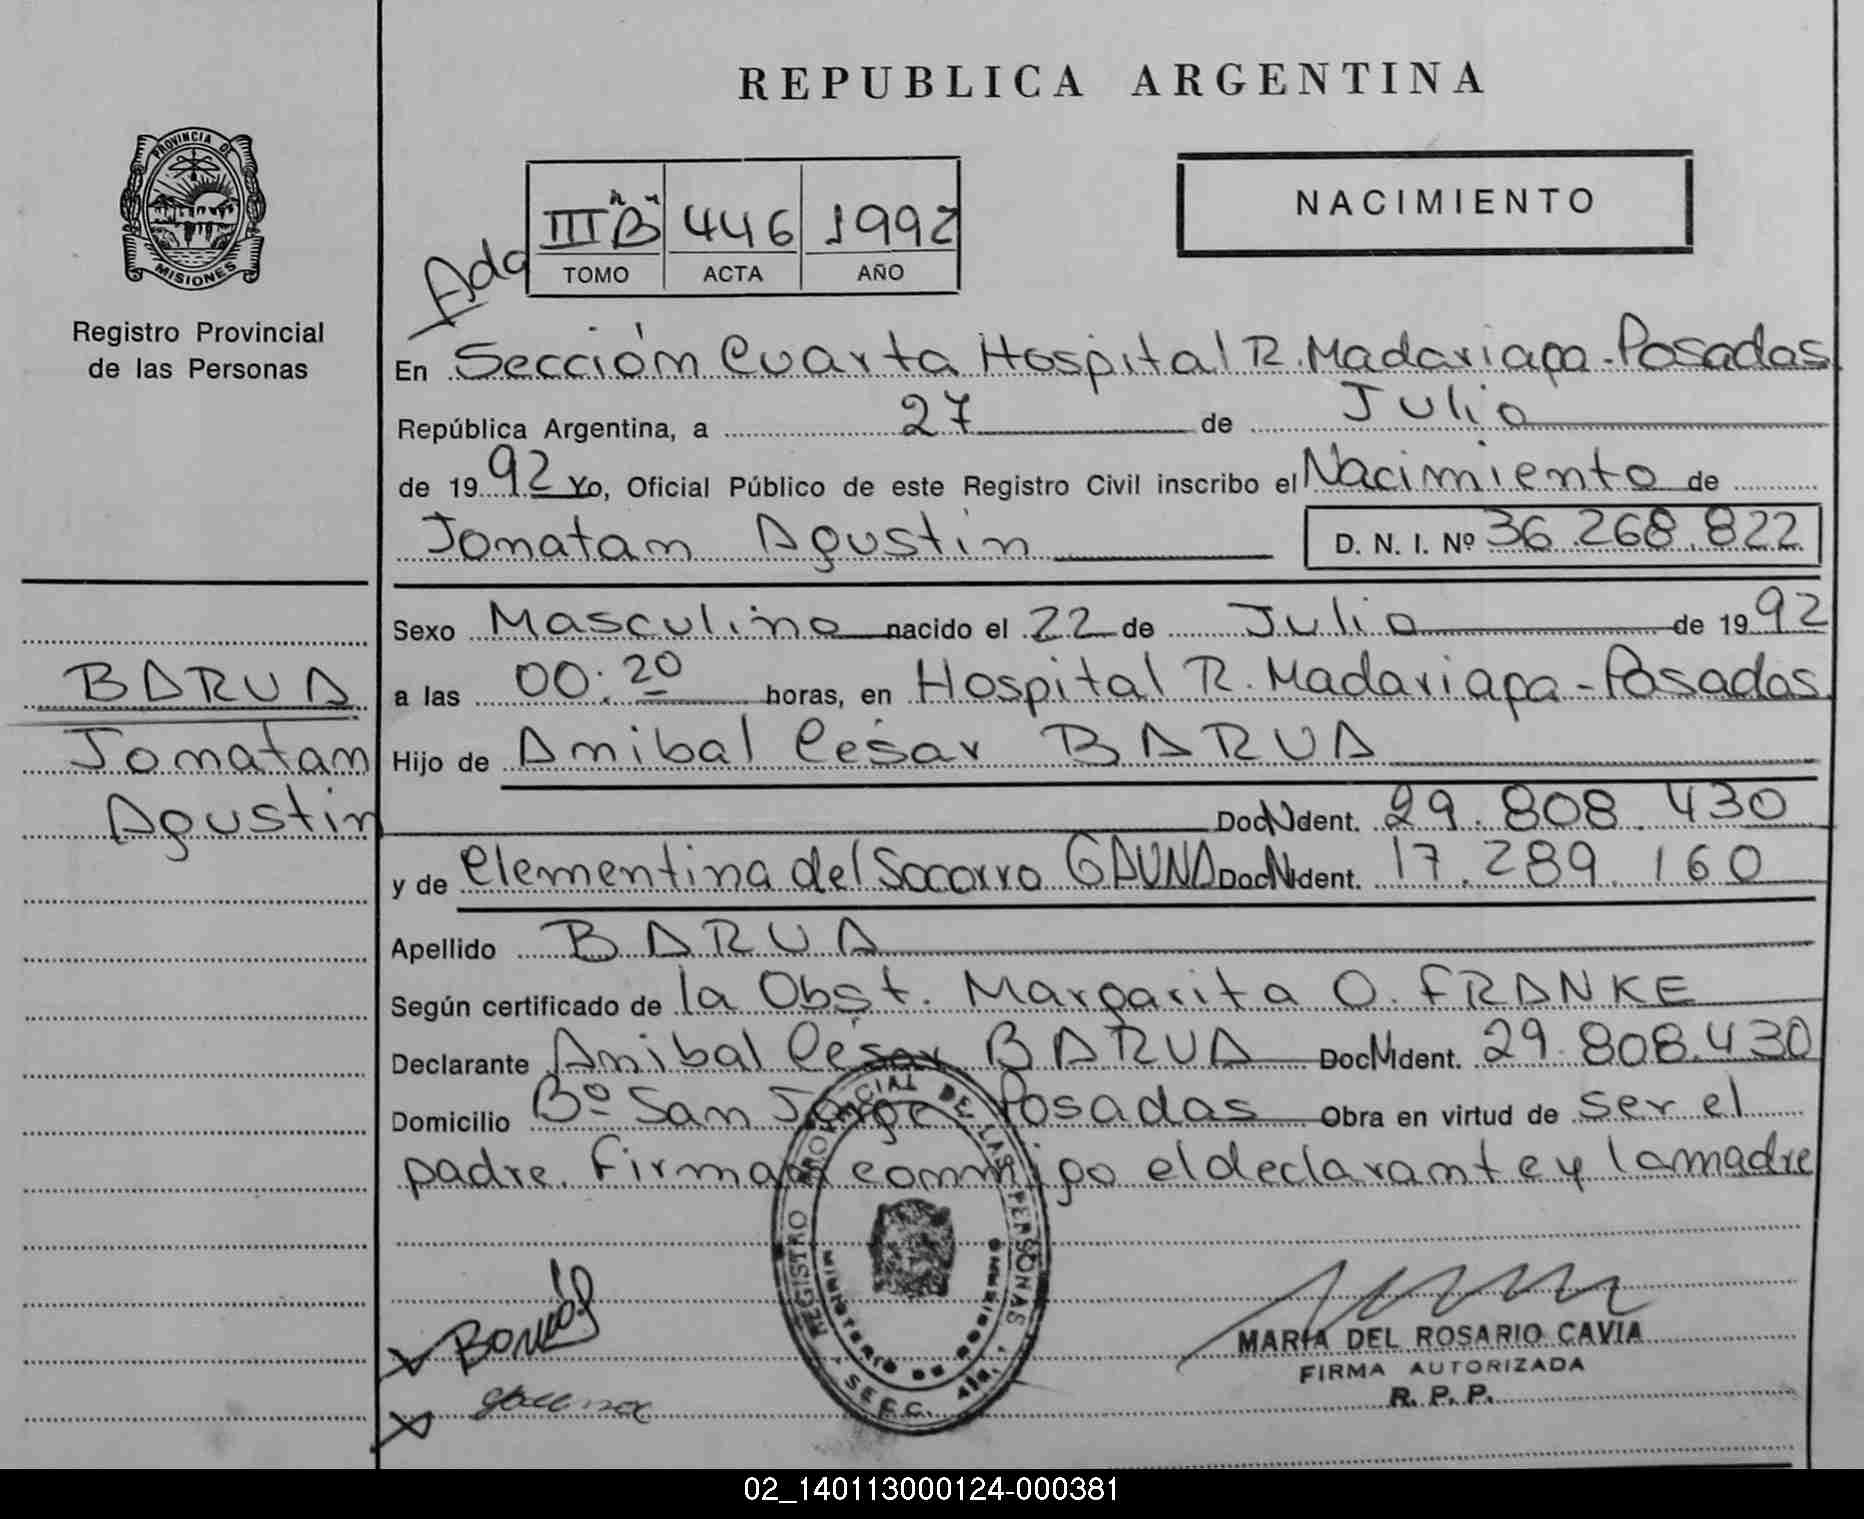 REPUBLICA ARGENTINA
PROVINCIA DE MISIONES
Registro Provincial
de las Personas
NACIMIENTO
III "B" 446 1992
TOMO ACTA AÑO
En Sección Cuarta Hospital R. Madariaga - Posadas
República Argentina, a 27 de Julio
de 1992 Yo, Oficial Público de este Registro Civil inscribo el Nacimiento de
Jonatan Agustin D. N. I. Nº 36.268.822
Sexo Masculino nacido el 22 de Julio de 1992
BARUA
a las 00:20 horas, en Hospital R. Madariaga - Posadas
Jonatan
Hijo de Anibal César BARUA
Agustin
Doc N Ident. 29.808.430
y de Clementina del Socorro GAUNA Doc N Ident. 17.289.160
Apellido BARUA
Según certificado de la Obst. Margarita O. FRANKE
Declarante Anibal César BARUA Doc N Ident. 29.808.430
Domicilio Bº San Jorge Posadas Obra en virtud de ser el
padre. Firman conmigo el declarante y la madre
REGISTRO PROVINCIAL DE LAS PERSONAS
MINISTERIO DE GOBIERNO
SECC. 4ta.
MARIA DEL ROSARIO CAVIA
FIRMA AUTORIZADA
R. P. P.
02_140113000124-000381